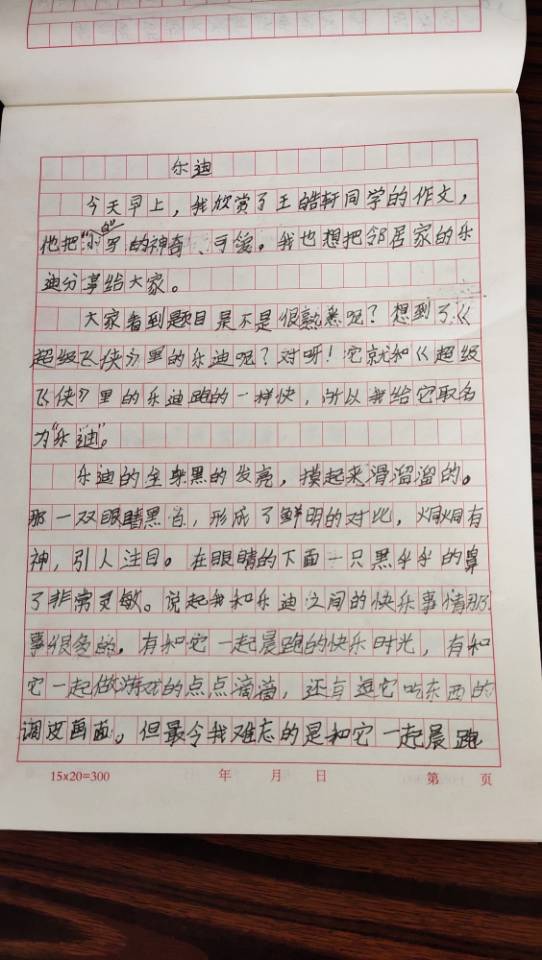 乐迪
今天早上，我欣赏了王皓轩同学的作文，
他把“小白”写的神奇、可爱。我也想把邻居家的乐
迪分享给大家。
大家看到题目是不是很熟悉呢？想到了《
超级飞侠》里的乐迪呢？对呀！它就和《超级
飞侠》里的乐迪跑的一样快，所以我给它取名
为“乐迪”。
乐迪的全身黑的发亮，摸起来滑溜溜的。
那一双眼睛黑白，形成了鲜明的对比，炯炯有
神，引人注目。在眼睛的下面一只黑乎乎的鼻
了非常灵敏。说起我和乐迪之间的快乐事情那
事很多的，有和它一起晨跑的快乐时光，有和
它一起做游戏的点点滴滴，还有逗它吃东西的
调皮画面。但最令我难忘的是和它一起晨跑
15x20=300 年 月 日 第 页